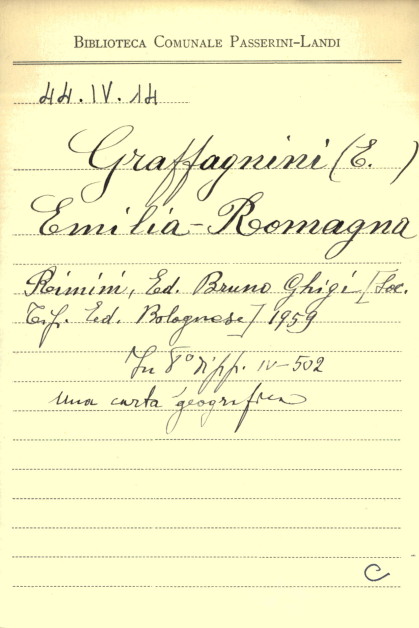 BIBLIOTECA COMUNALE PASSERINI-LANDI
44.IV.14
Graffagnini (E. )
Emilia-Romagna
Rimini, Ed. Bruno Ghigi [Soc.
Tip. Ed. Bolognese] 1959
In 8° di pp. IV-502
una carta geografica
C